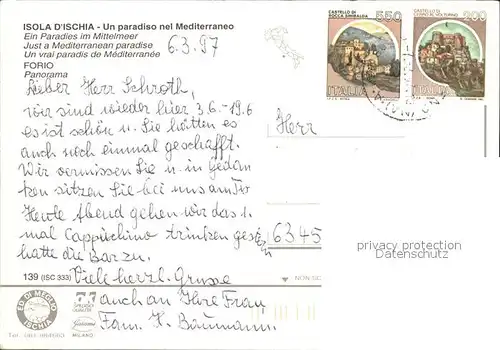 ISOLA D'ISCHIA - Un paradiso nel Mediterraneo
Ein Paradies im Mittelmeer
Just a Mediterranean paradise
Un vrai paradis de Méditerranée
FORIO
Panorama
6.3.97
CASTELLO DI
ROCCA SINIBALDA
550
ITALIA
200
ITALIA
Lieber Herr Schroth,
wir sind wieder hier 3.6 - 19.6
es ist schön u. Sie hätten es
auch noch einmal geschafft.
Wir vermissen Sie u. in Gedan
ken sitzen Sie bei uns am
Heute Abend gehen wir das 1.
mal Cappuchino trinken
hatte die Bar zu.
Viele herzl. Grüsse
auch an Ihre Frau
Fam. H. Baumann.
Herr
6345
privacy protection
Datenschutz
139 (ISC 333)
ED. DI MEGLIO
ISCHIA
MILANO